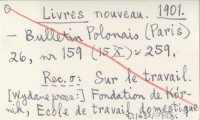 Livres nouveau. 1901.
- Bulletin Polonais (Paris)
26, no 159 (15 X) = 259.
Rec. o: Sur le travail.
[Wydane przez:] Fondation de Kór-
nik, Ecole de travail domestique